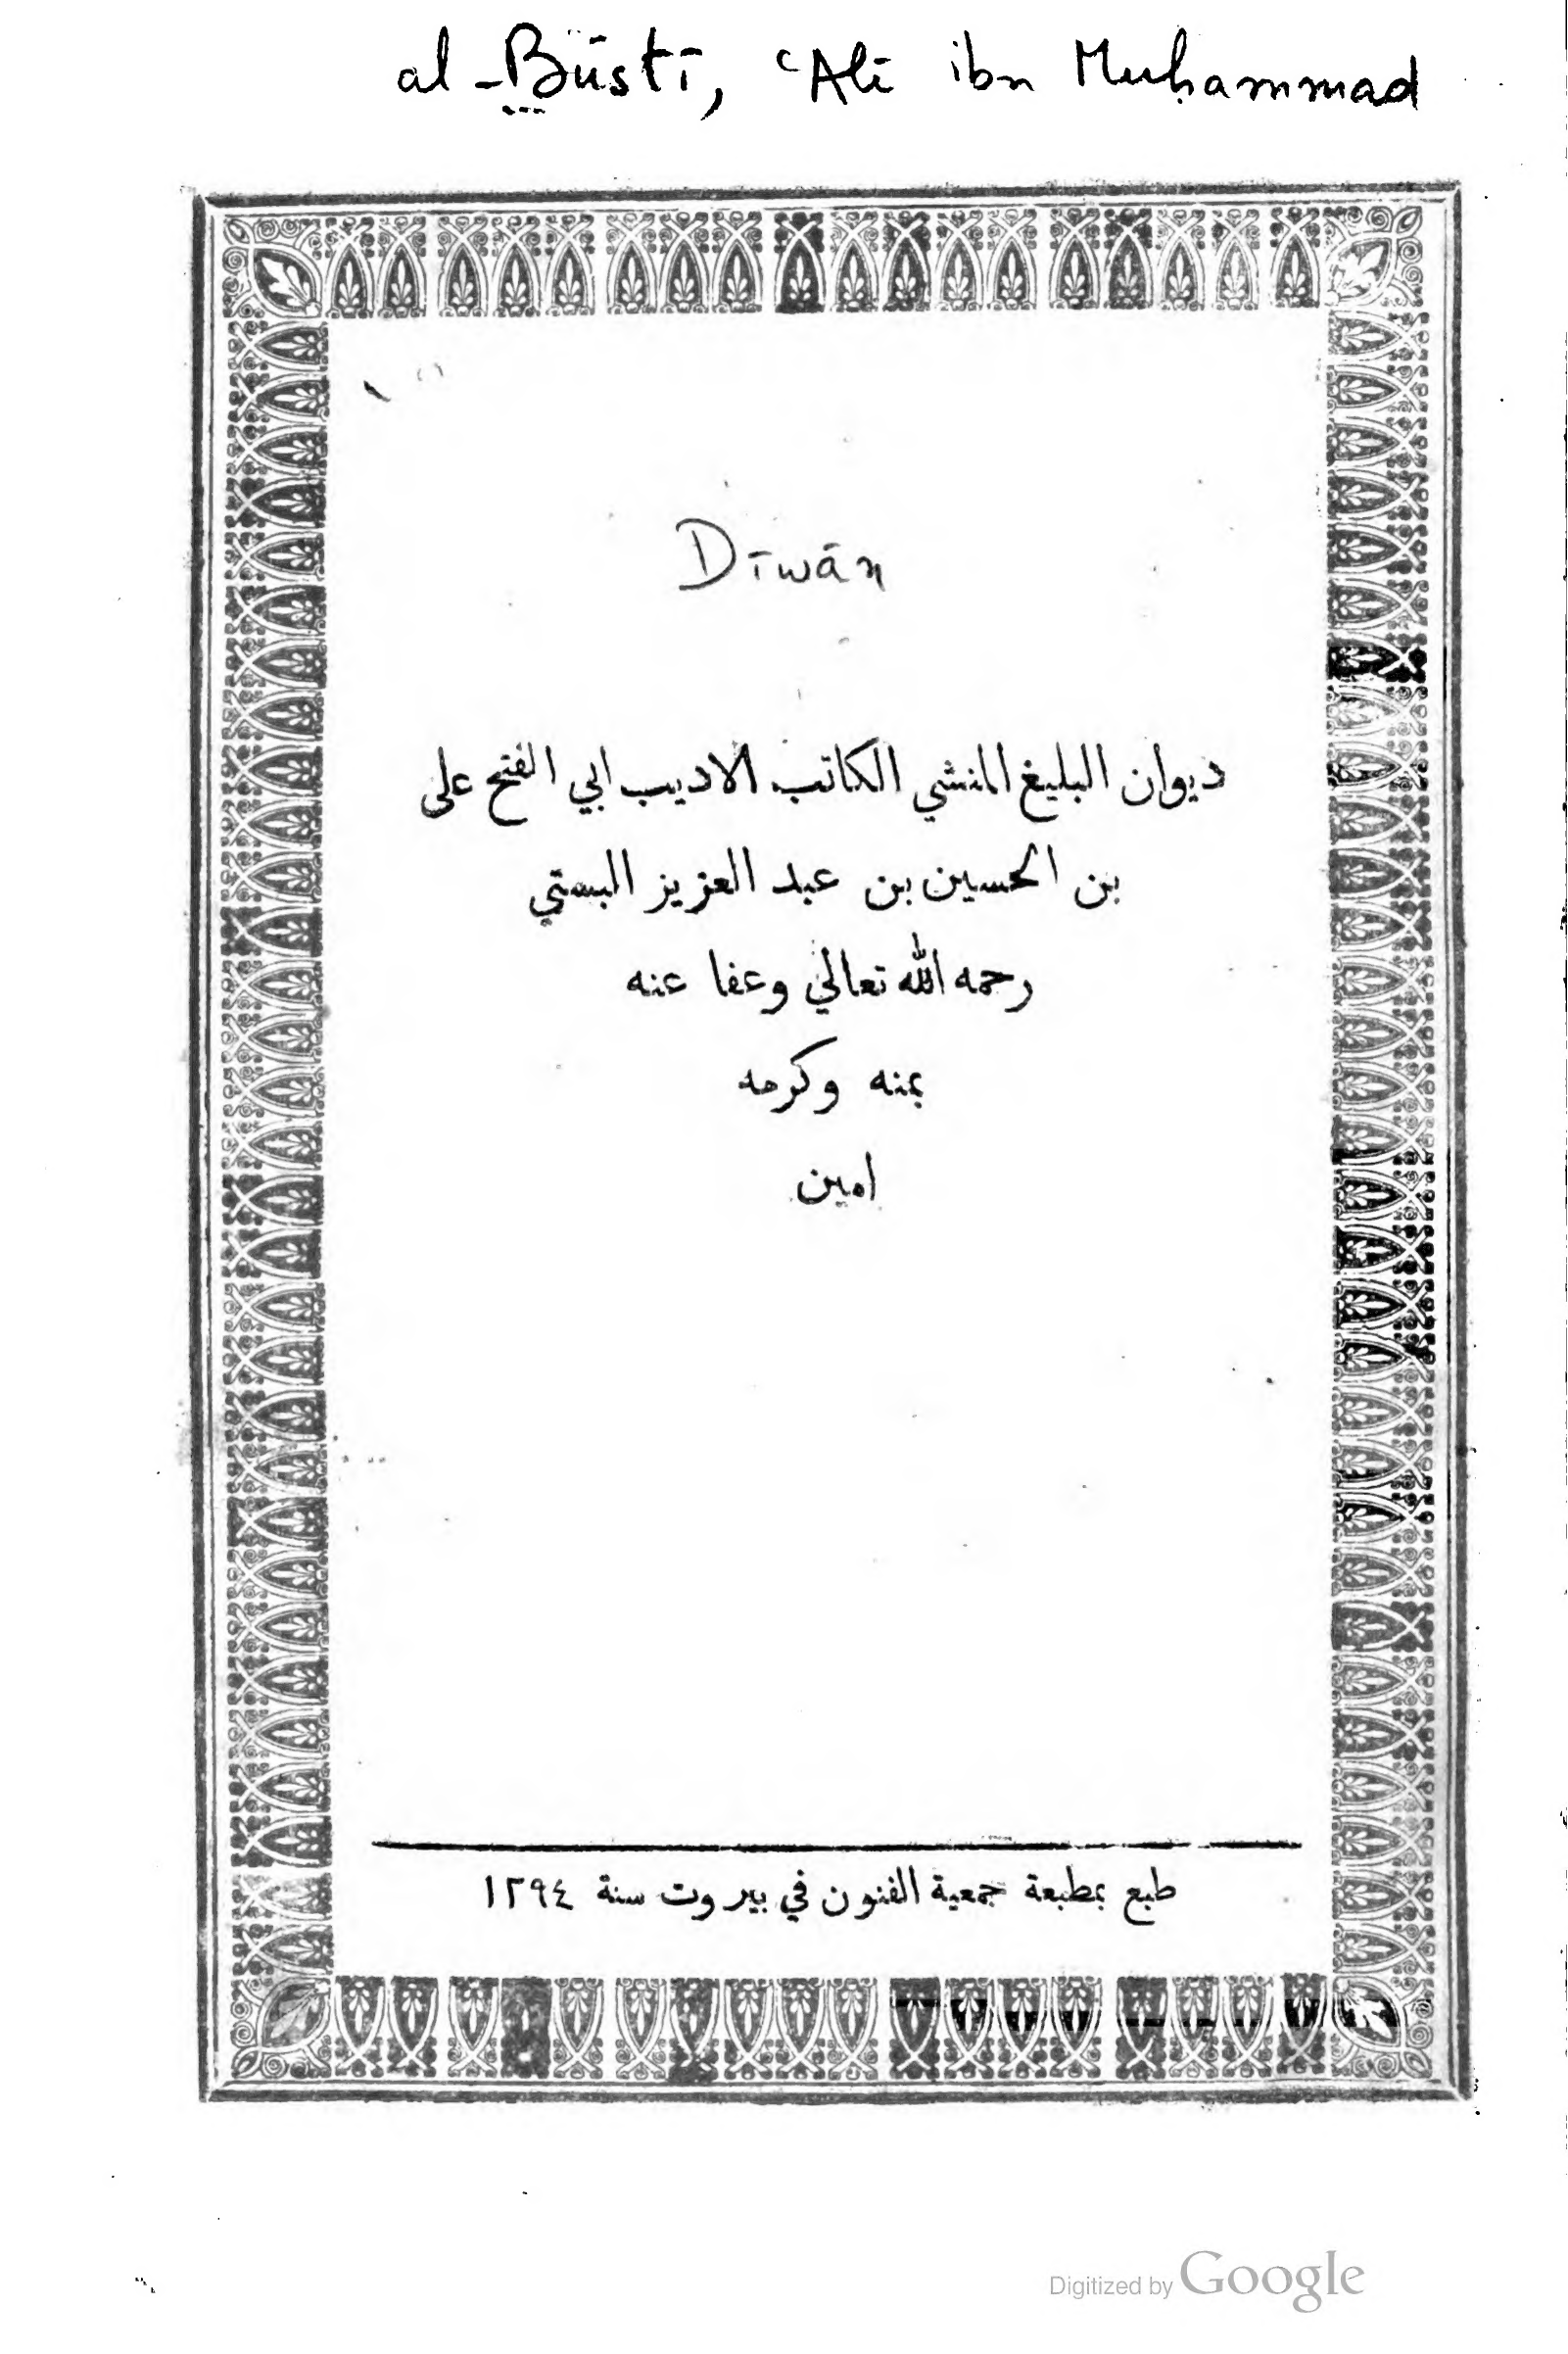 al-Būstī, ʿAlī ibn Muḥammad
Dīwān
ديوان البليغ المنشي الكاتب الاديب ابي الفتح على
بن الحسين بن عبد العزيز البستي
رحمه الله تعالي وعفا عنه
بمنه وكرمه
امين
طبع بمطبعة جمعية الفنون في بيروت سنة ١٢٩٤
Digitized by Google